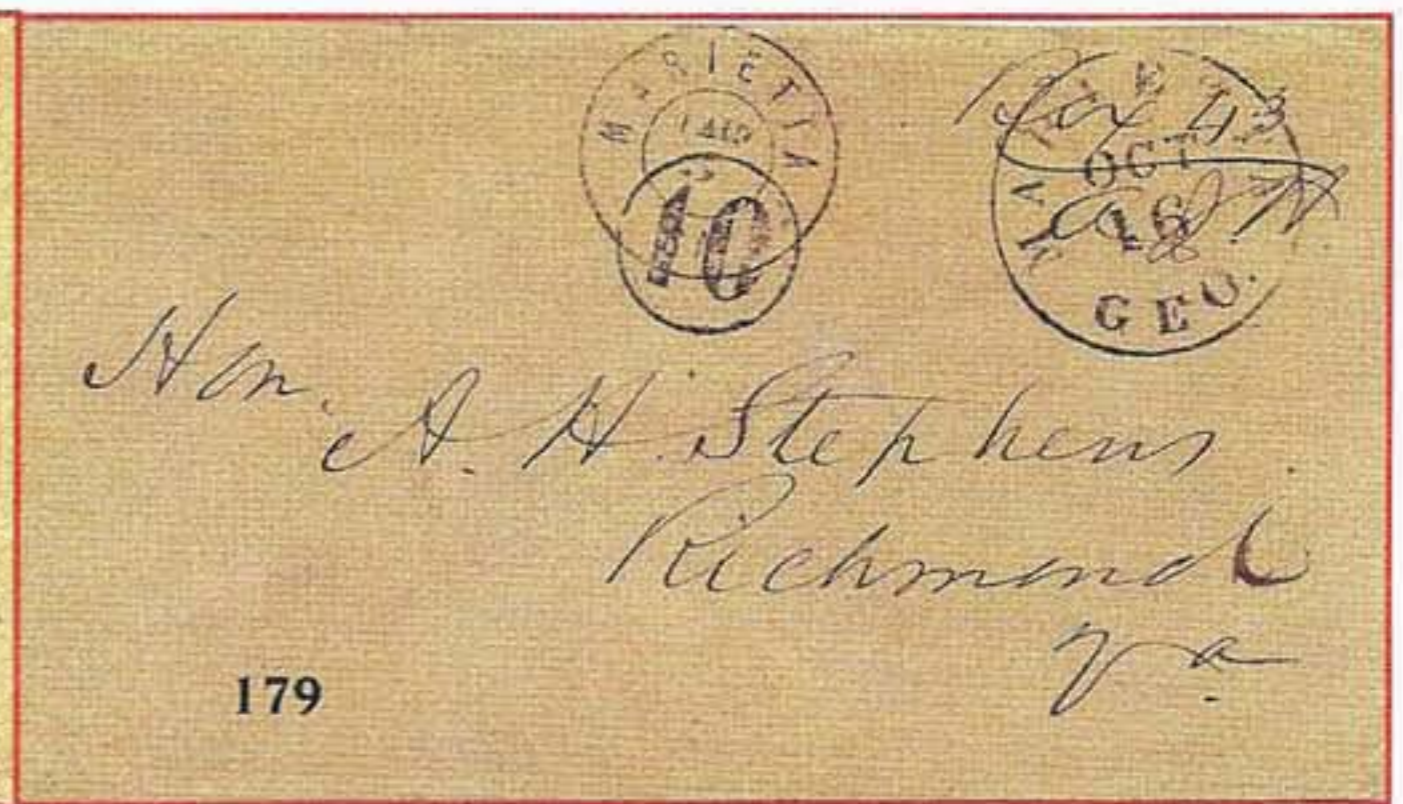 MARIETTA
PAID
10
MARIETTA
OCT
16
GEO.
Hon.
A. H. Stephens
Richmond
Va
179